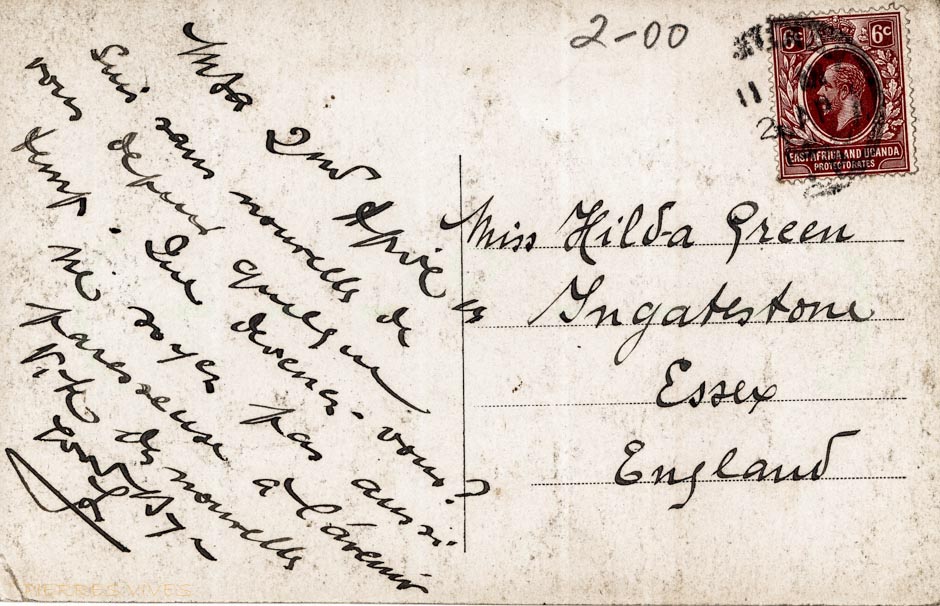 2-00
6c 6c
EAST AFRICA AND UGANDA
PROTECTORATES
11
2nd April
Suis sans nouvelles de
vous depuis quelque
temps. Que devenez-vous?
Ne soyez pas aussi
paresseuse à l'avenir
des nouvelles
Miss Hilda Green
Ingatestone
Essex
England